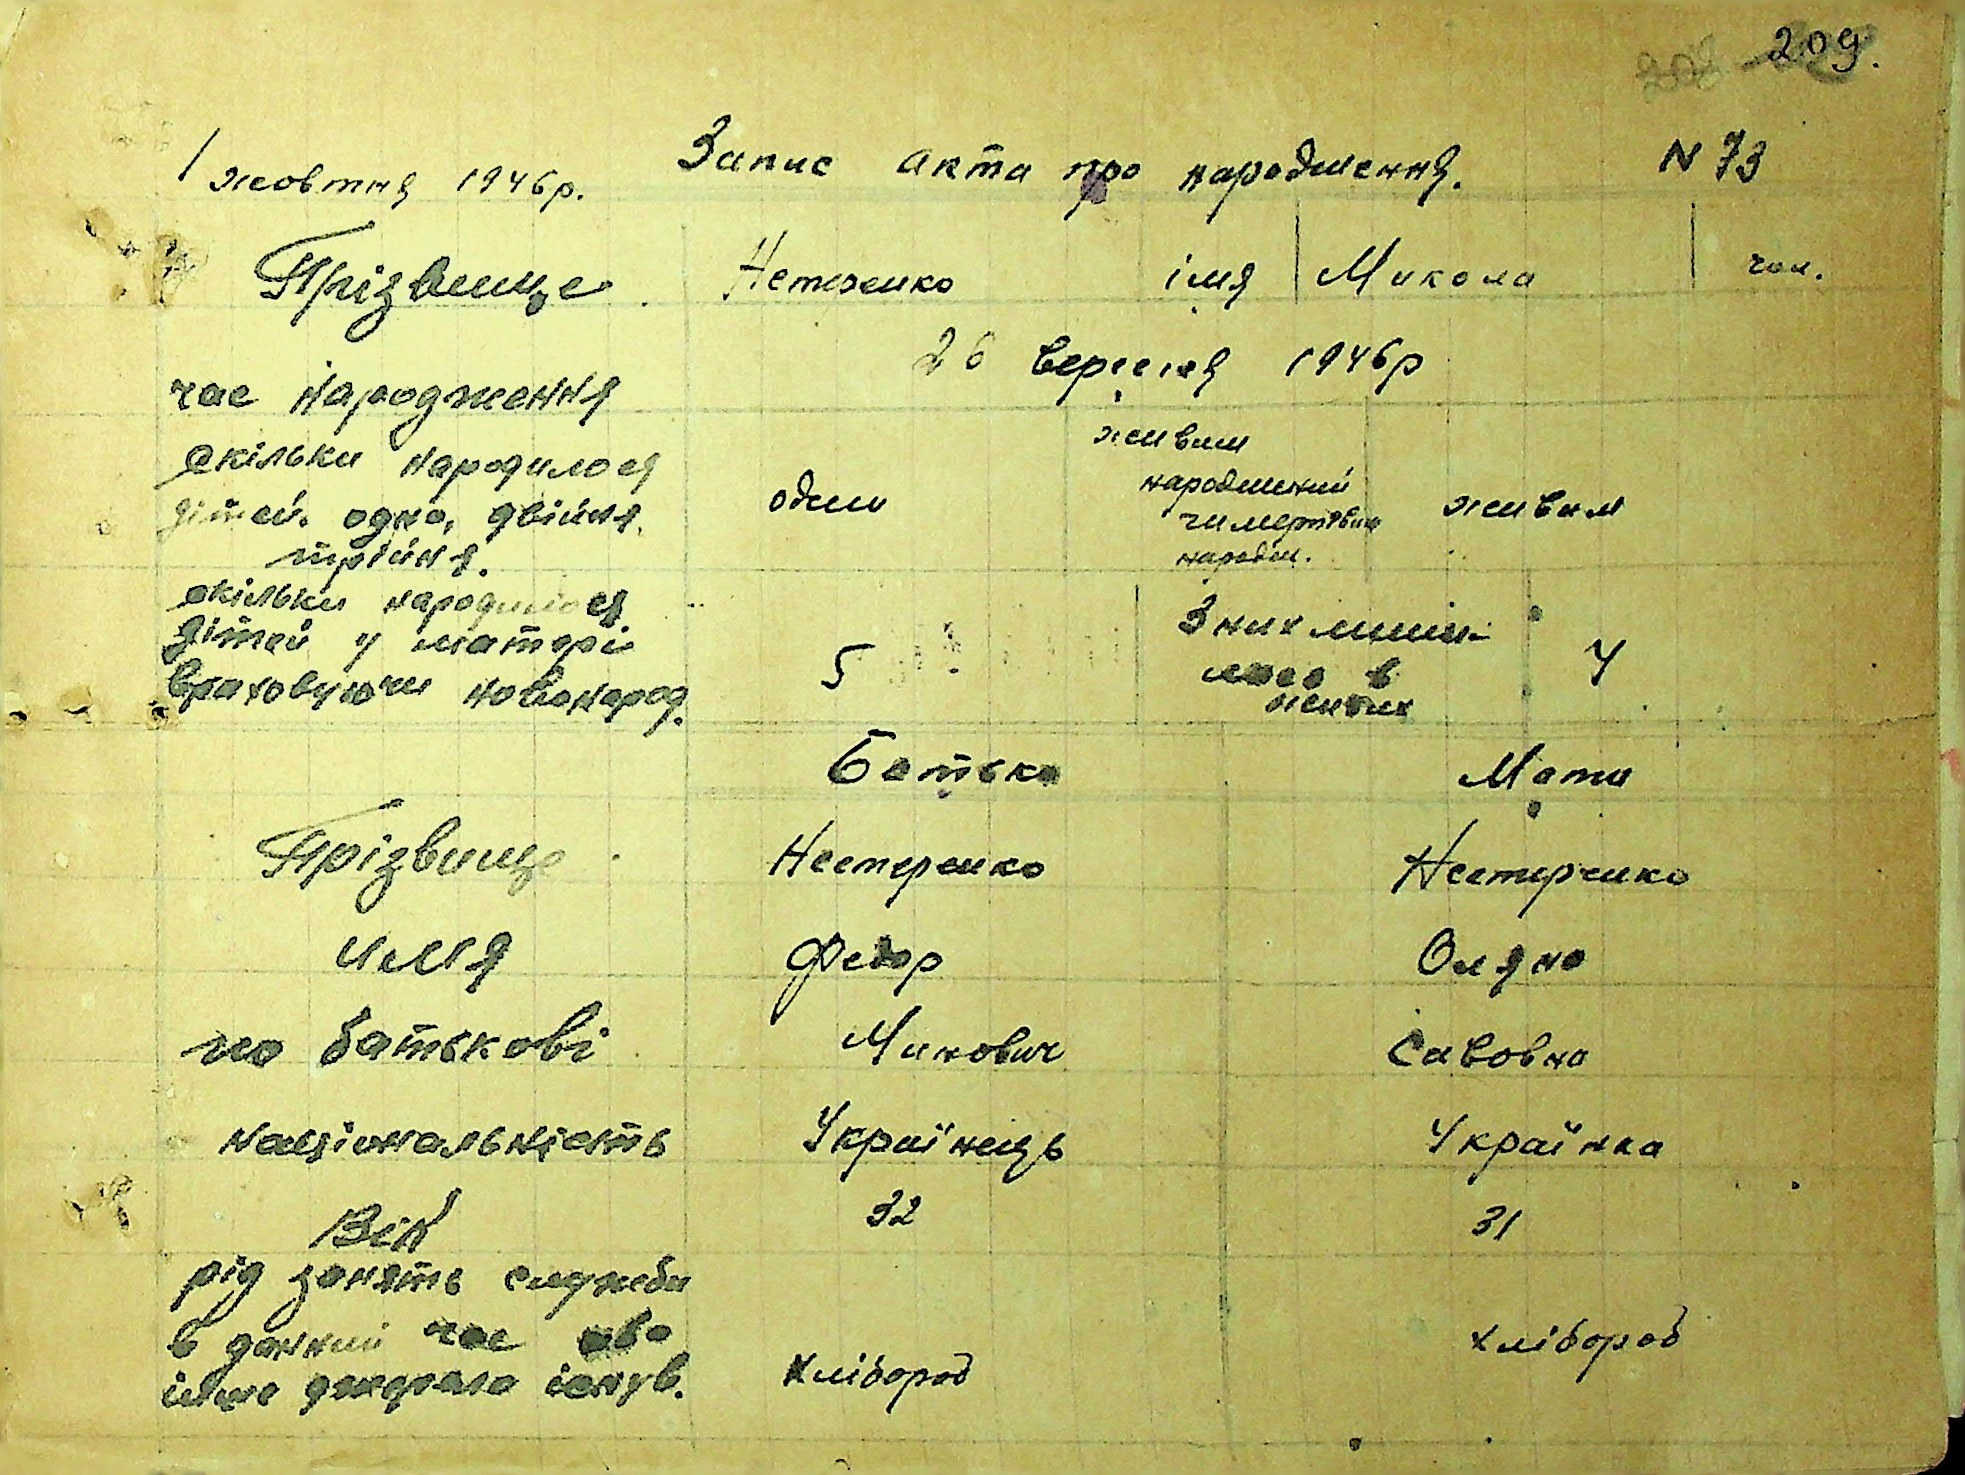 209.
1 жовтня 1946р. Запис акта про народження. N 73
Прізвище Нетеренко імя Микола чол.
час народження 26 вересня 1946р
скільки народилося
дітей. одно, двійня,
трійня.
один
живим
народжений
чи мертвим
народж.
живим
скільки народилося
дітей у матері
враховуючи новонарод.
5
З них лиши-
лося в
живих
4
Батько Мати
Прізвище Нестеренко Нестеренко
имя Федор Оляна
по батькові Савовна
національність Українець Українка
Вік 32 31
рід занять служби
в данний час або
інше джерело існув.
хлібороб хлібороб